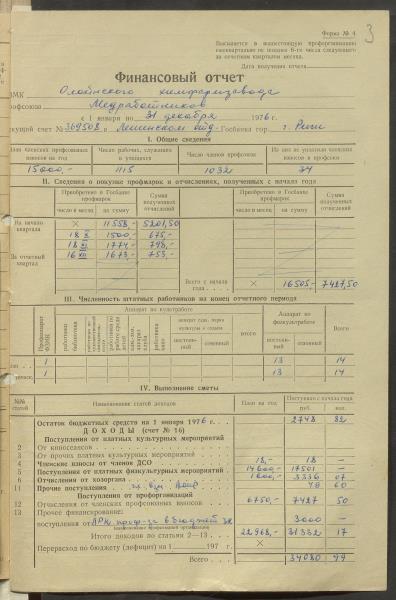 Форма № 4
3
Высылается в вышестоящую профорганизацию
ежеквартально не позднее 6-го числа следующего
за отчетным кварталом месяца.
Дата получения отчета
Финансовый отчет
ФМК Олайнского химфармзавода
профсоюза Медработников
с 1 января по 31 декабря 1976 г.
текущий счет № 369508 в Ленинском отд. Госбанка гор. г. Риги
I. Общие сведения
План членских профсоюзных взносов на год
Число рабочих, служащих и учащихся
Число членов профсоюза
Из них не уплатили членских взносов в профсоюз
15000,-
1115
1032
34
II. Сведения о покупке профмарок и отчислениях, полученных с начала года
Приобретено в Госбанке профмарок
Сумма полученных отчислений
Приобретено в Госбанке профмарок
Сумма полученных отчислений
число и месяц
на сумму
число и месяц
на сумму
На начало квартала × 11558,- 5201,50
18 X 1500,- 675,-
18 XI 1774,- 798,-
За отчетный квартал 16 XII 1673,- 753,-
Всего с начала года . . . × 16505,- 7427,50
III. Численность штатных работников на конец отчетного периода
Профаппарат ФЗМК
Аппарат по культработе
Аппарат по физкультработе
Всего
работники библиотеки
итого
постоянный
сезонный
постоянный
сезонный
1 13 14
1 13 14
IV. Выполнение сметы
№№ статей
Наименование статей доходов
План на год
Поступило с начала года
руб.
коп.
Остаток бюджетных средств на 1 января 1976 г. . . . 2748 82
ДОХОДЫ (счет № 16)
Поступления от платных культурных мероприятий
2 От киносеансов
3 От прочих платных культурных мероприятий
4 Членские взносы от членов ДСО 18,- 18 —
5 Поступления от платных физкультурных мероприятий 14600,- 17501 —
6 Отчисления от хозоргана 1600,- 3336 07
11 Прочие поступления 48 60
Поступления от профорганизаций
12 Отчисления от членских профсоюзных взносов 6750,- 7427 50
13 Прочее финансирование:
поступления от 3000 —
наименование профсоюзной организации
Итого доходов по статьям 2—13 22968,- 31332 17
Перерасход по бюджету (дефицит) на 1 197 г. ×
Всего . . . 34080 99